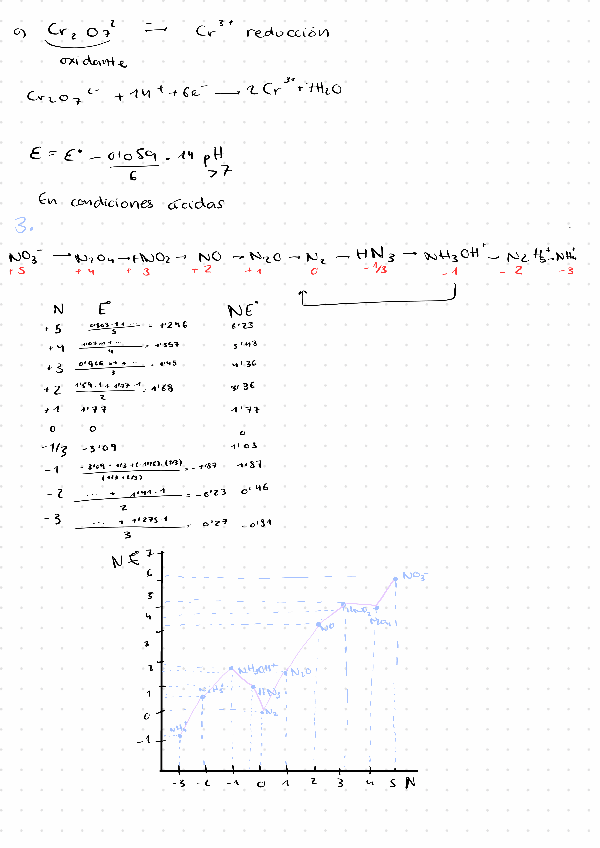 a) Cr₂O₇²⁻ → Cr³⁺ reducción
oxidante
Cr₂O₇²⁻ + 14H⁺ + 6e⁻ → 2Cr³⁺ + 7H₂O
E = E° - 0'059/6 · 14 pH
>7
En condiciones ácidas
3.
NO₃⁻ → N₂O₄ → HNO₂ → NO → N₂O → N₂ → HN₃ → NH₃OH⁺ → N₂H₅⁺ → NH₄⁺
+5 +4 +3 +2 +1 0 -1/3 -1 -2 -3
N E° NE°
+5 5 = 1'246 6'23
+4 4 = 1'357 5'43
+3 3 = 1'45 4'36
+2 1'59·1 + 1'77·1 / 2 = 1'68 3'36
+1 1'77 1'77
0 0 0
-1/3 -3'09 1'03
-1 = -1'87 1'87
-2 ... + 1'41·1 / 2 = -0'23 0'46
-3 ... + 1'275·1 / 3 = 0'27 -0'81
NE°
7
6
5
4
3
2
1
0
-1
NO₃⁻
HNO₂
NO
NH₃OH⁺
N₂O
N₂H₅⁺
HN₃
N₂
NH₄⁺
-3 -2 -1 0 1 2 3 4 5 N